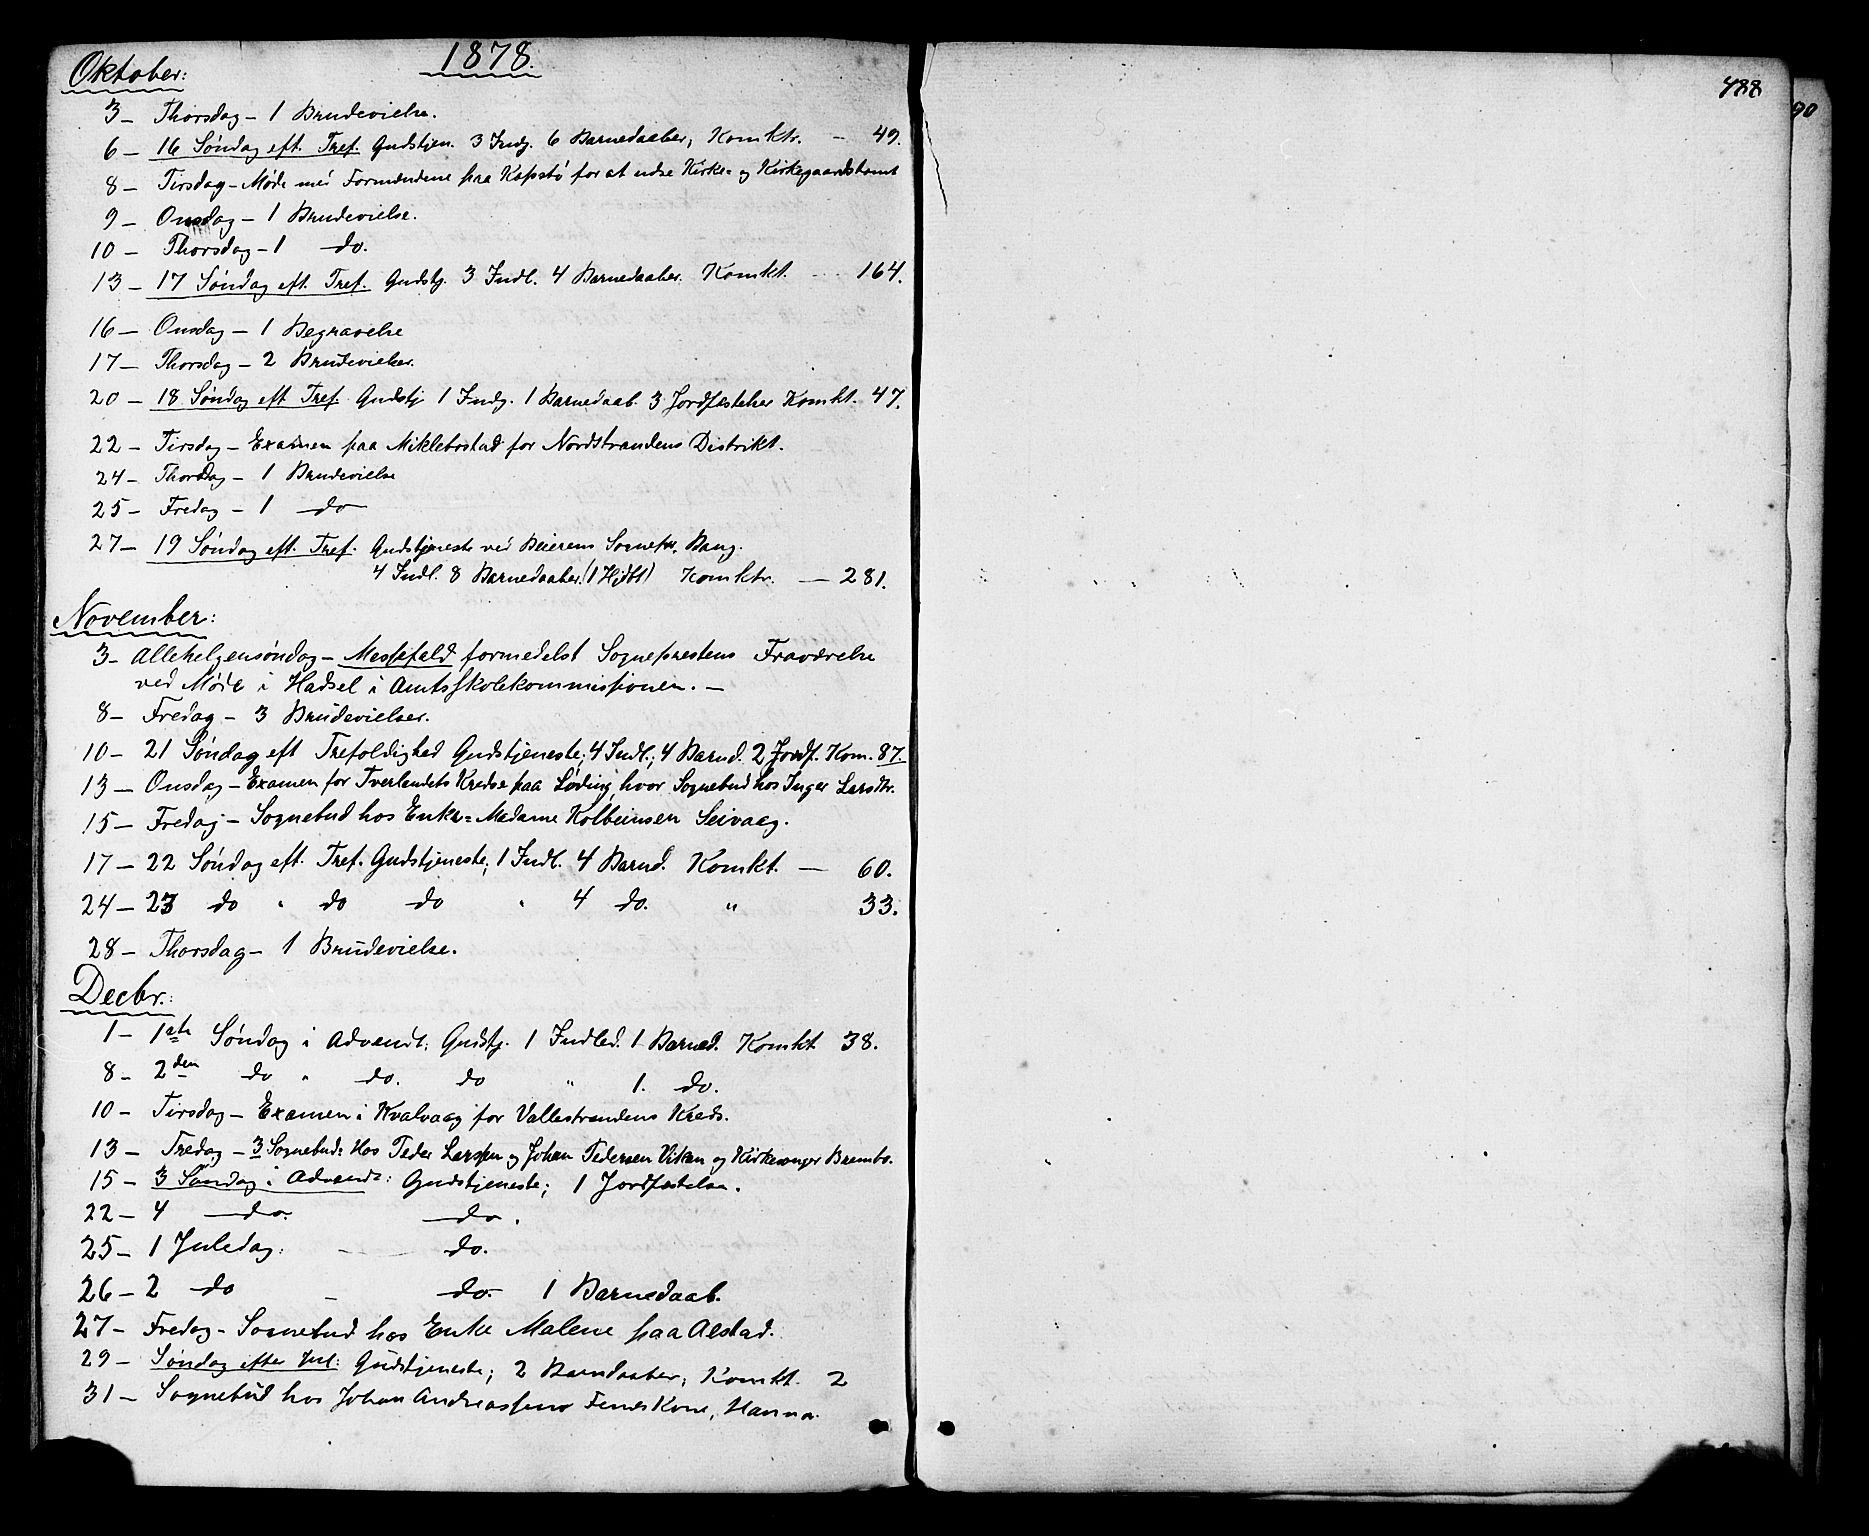 1878.
Oktober:
3 – Thorsdag – 1 Brudevielse.
6 – 16 Søndag eft. Tref. Gudstjen. 3 Indg. 6 Barnedaaber, Komktr. – 49.
8 – Tirsdag – Møde med Formændene paa Kapstø for at udse Kirke- og Kirkegaardstomt
9 – Onsdag – 1 Brudevielse.
10 – Thorsdag – 1 do.
13 – 17 Søndag eft. Tref. Gudstj. 3 Indl. 4 Barnedaaber. Komkt. – 164.
16 – Onsdag – 1 Begravelse
17 – Thorsdag – 2 Brudevielser.
20 – 18 Søndag eft Tref. Gudstj 1 Indg. 1 Barnedaab. 3 Jordfæstelser Komkt. 47.
22 – Tirsdag – Examen paa Miklebostad for Nordstrandens Distrikt.
24 – Thorsdag – 1 Brudevielse
25 – Fredag – 1 do
27 – 19 Søndag eft. Tref. Gudstjeneste ved Beierens Sognepr. Bang.
4 Indl. 8 Barnedaaber. (1 Hjdbt) Komktr. – 281.
November:
3 – Allehelgensøndag – Messefald formedelst Sogneprestens Fraværelse
ved Møde i Hadsel i Amtsskolekommissionen. –
8 – Fredag – 3 Brudevielser.
10 – 21 Søndag eft Trefoldighed Gudstjeneste; 4 Indl.; 4 Barnd. 2 Jordf. Kom. 87.
13 – Onsdag – Examen for Tverlandets Kredse paa Løding, hvor Sognebud hos Inger Larsdtr.
15 – Fredag – Sognebud hos Enke-Madame Kolbeinsen Seivaag.
17 – 22 Søndag eft. Tref. Gudstjeneste; 1 Indl. 4 Barnd. Komkt. – 60.
24 – 23 do " do do " 4 do. " 33.
28 – Thorsdag – 1 Brudevielse.
Decbr.:
1 – 1ste Søndag i Advendt: Gudstj. 1 Indled. 1 Barned. Komkt 38.
8 – 2den do " do. do " 1. do.
10 – Tirsdag – Examen i Kvalvaag for Vallestrandens Kreds.
13 – Fredag – 3 Sognebud: Hos Peder Larsen og Johan Pedersen Viken og Kirkesanger Brembo.
15 – 3 Søndag i Advendt: Gudstjeneste; 1 Jordfæstelse.
22 – 4 do. do.
25 – 1 Juledag: – do.
26 – 2 do – do. 1 Barnedaab.
27 – Fredag – Sognebud hos Enke Malene paa Alstad.
29 – Søndag efter Jul: Gudstjeneste; 2 Barndaaber; Komkt. 2
31 – Sognebud hos Johan Andreassens Kone, Hanna.
488
90